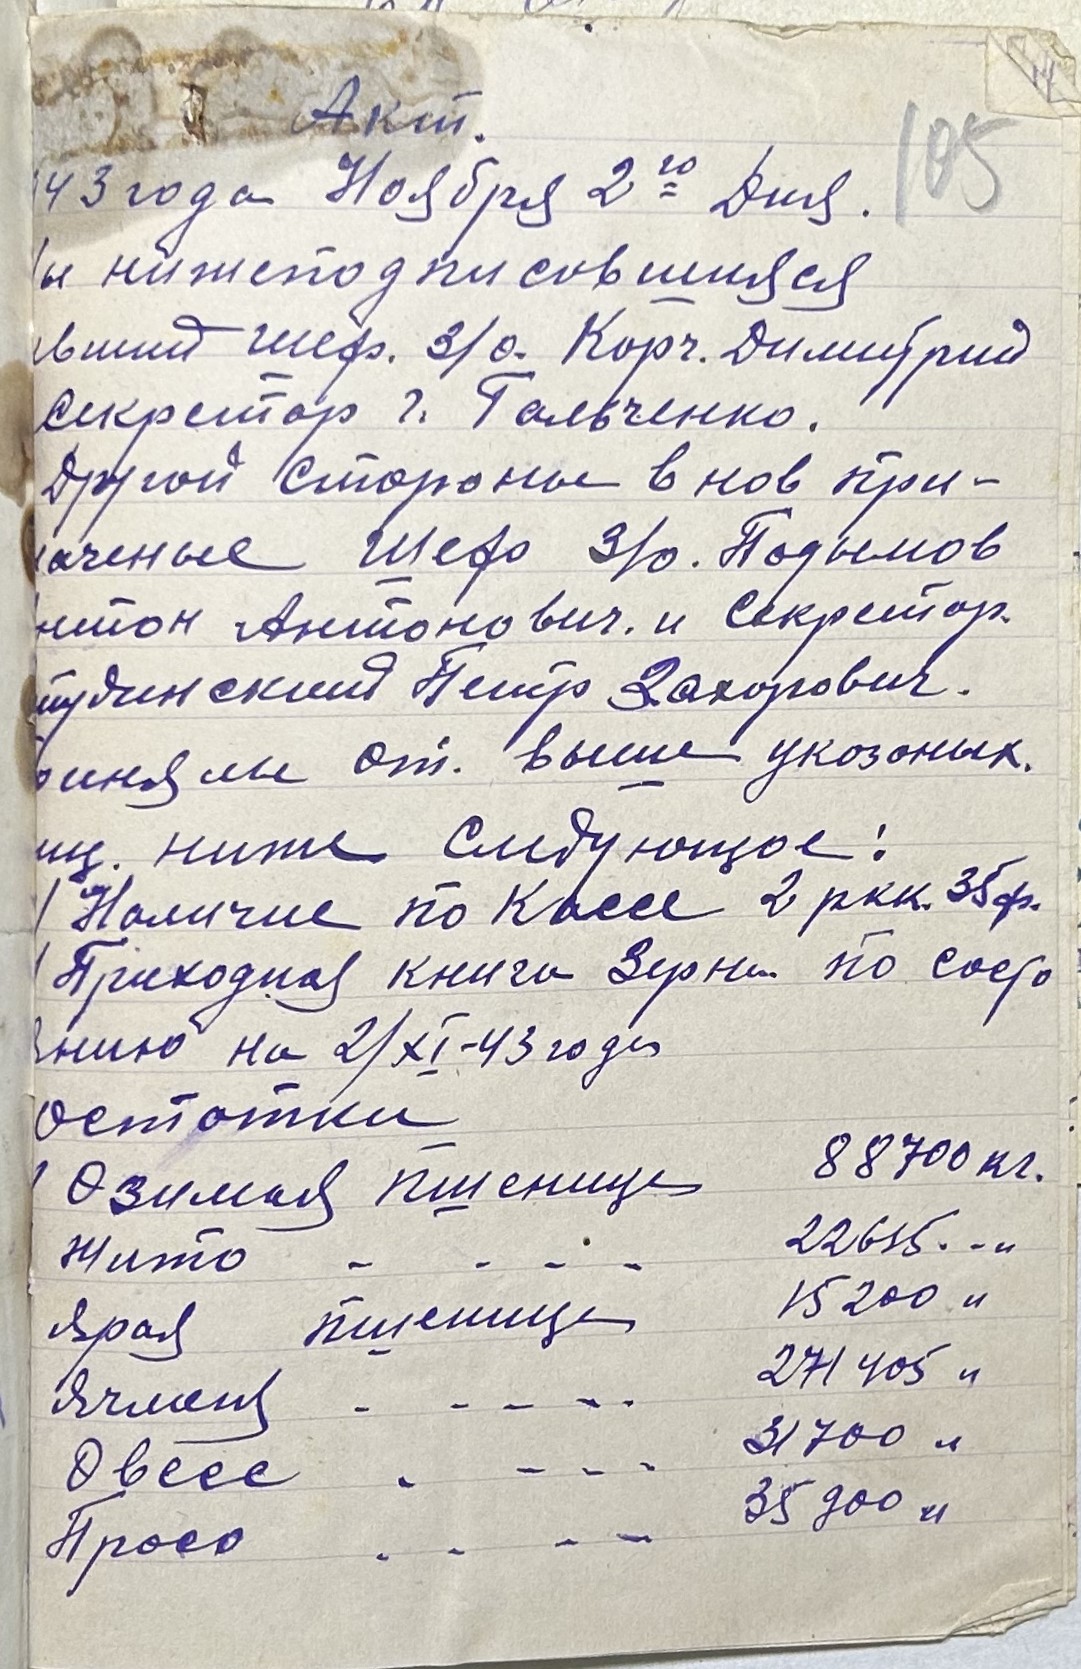 Акт.
105
43 года Ноября 2го Дня.
ы нижеподписовшияся
вший шеф. з/о. Корч. Димитрий
секретор г. Гальченко.
Другой стороные в нов при-
наченые Шеф з/о. Подымов
нтон Антонович. и Секретор.
тудинский Петр Захорович.
риняли от. выше укозоных.
иц. ниже следующое:
/ Наличие по Кассе 2 ркк. 35ф.
/ Приходная книга Зерна по состо
янию на 2/XI-43 года
Остотки
/ Озимая пшеница 88700 кг.
Жито - - - - 22615. - - "
Ярая пшеница 15200 "
Ячменя - - - - - 271405 "
Овесс - - - - 31700 "
Просо - - - - 35900 "